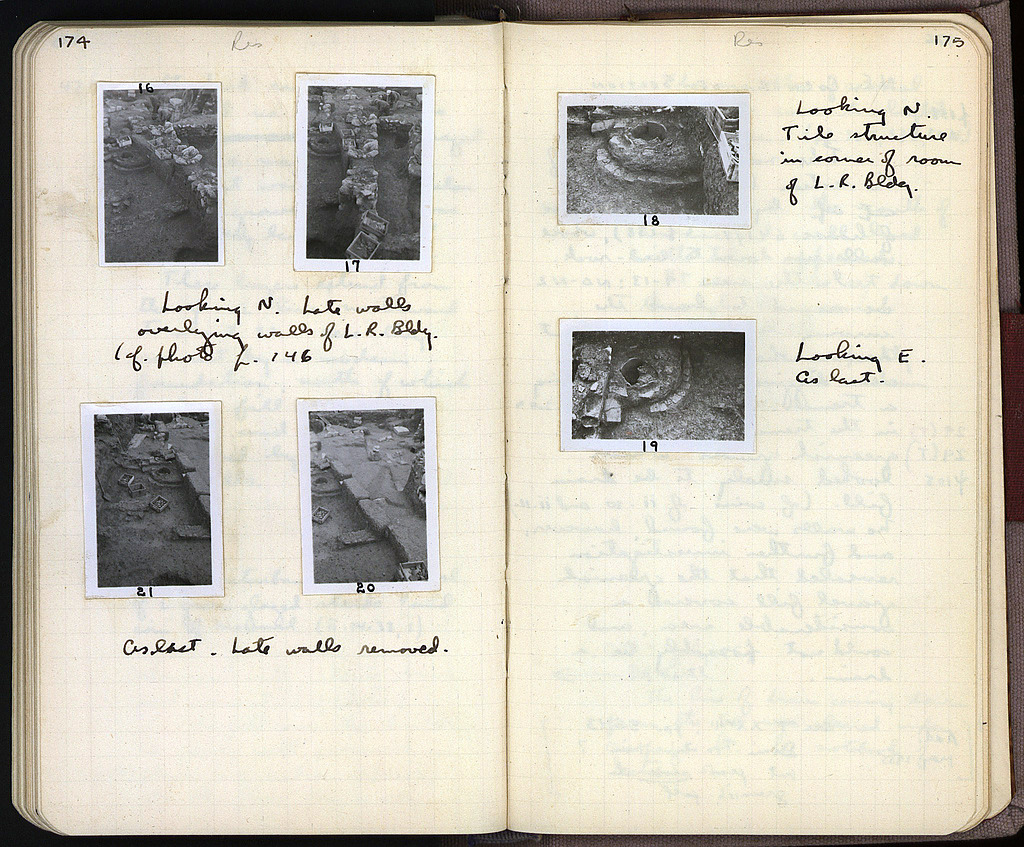 174
Res
16
17
Looking N. Late walls
overlying walls of L.R. Bldg.
(cf. photo p. 146
21
20
As last. Late walls removed.
Res
175
18
Looking N.
Tile structure
in corner of room
of L.R. Bldg.
19
Looking E.
As last.